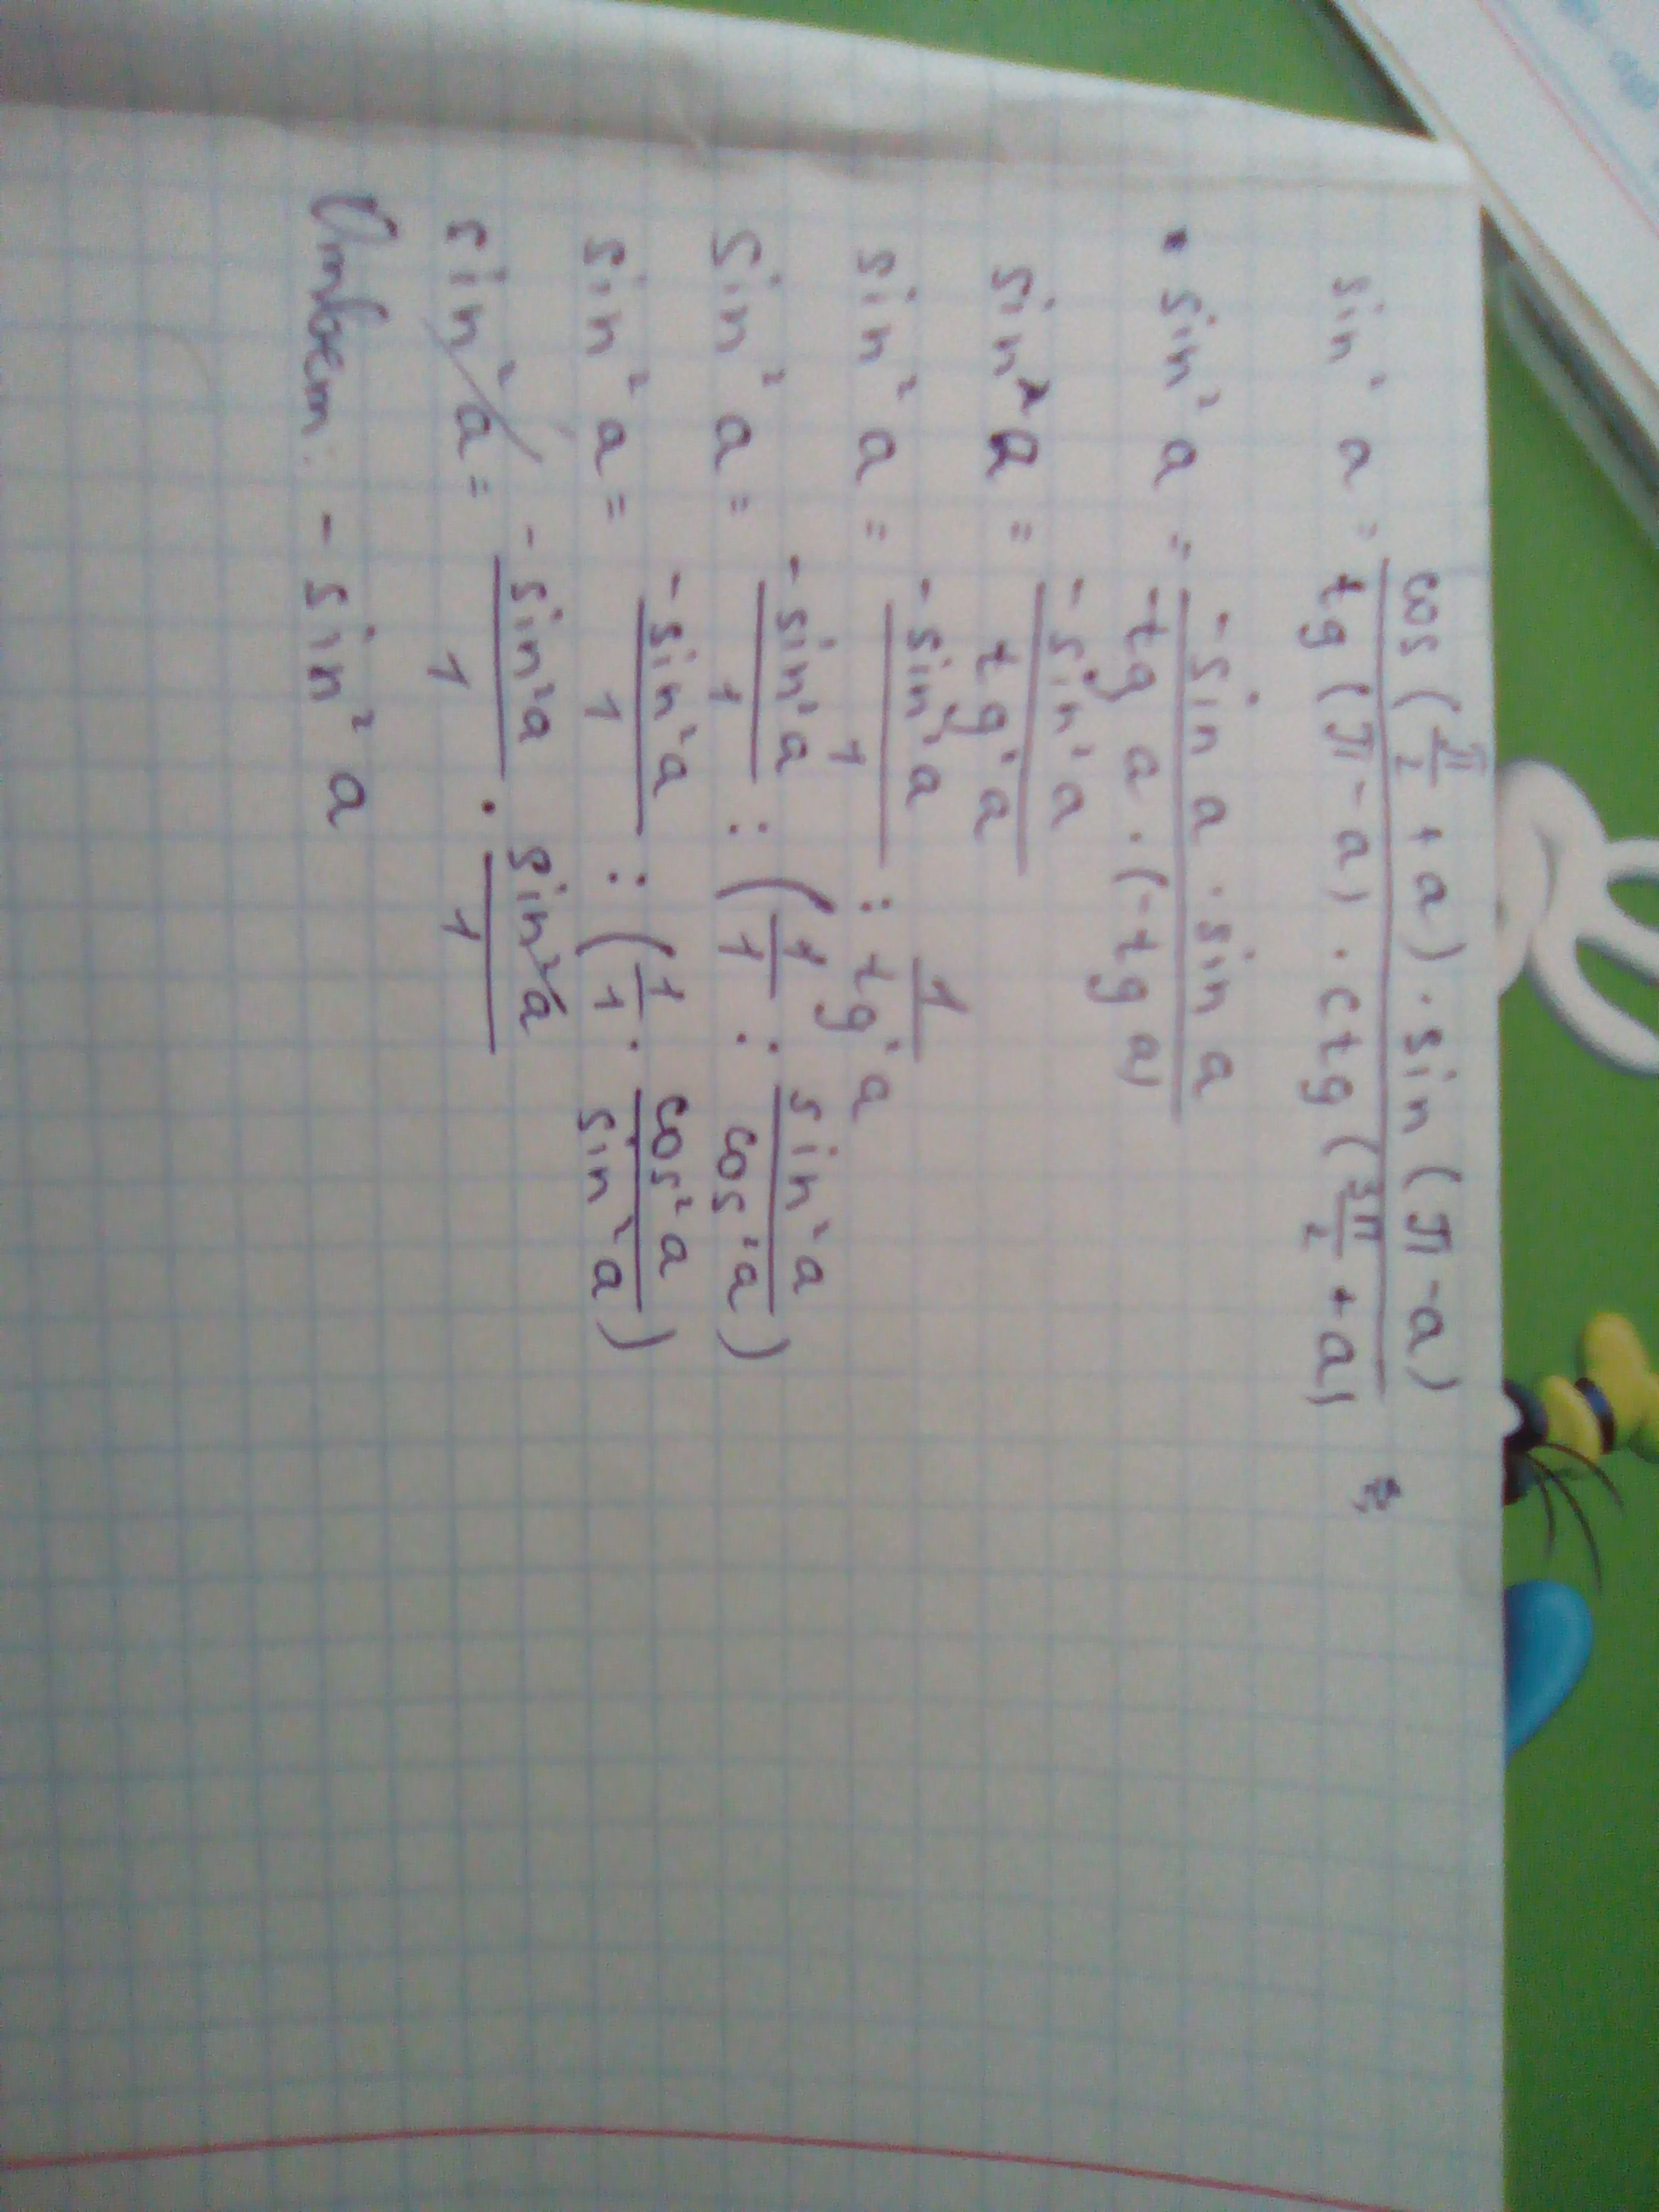 sin² a = cos(π/2 + a) · sin(π - a) / tg(π - a) · ctg(3π/2 + a)
sin² a = -sin a · sin a / -tg a · (-tg a)
sin² a = -sin² a / tg² a
sin² a = -sin² a / 1 : 1 / tg² a
sin² a = -sin² a / 1 : (1/1 : sin² a / cos² a)
sin² a = -sin² a / 1 : (1/1 · cos² a / sin² a)
sin² a = -sin² a / 1 · sin² a / 1
Ответ: - sin² a